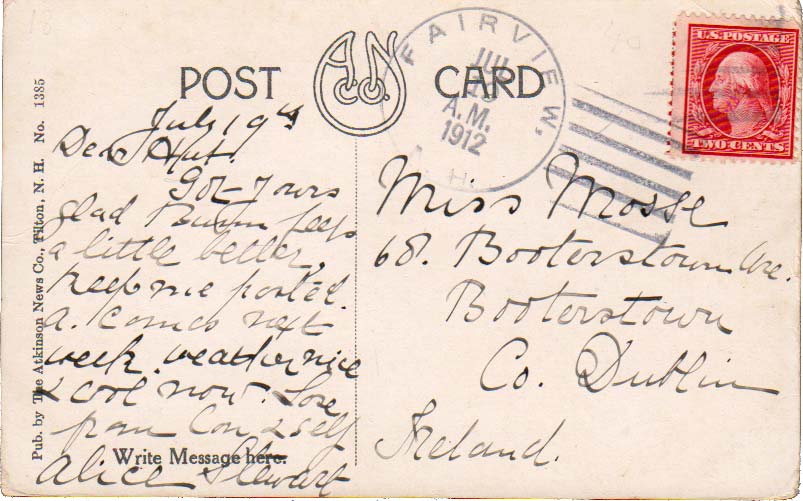 POST CARD
A.N. Co.
FAIRVIEW,
JUL
A.M.
1912
H.
U.S. POSTAGE
TWO CENTS
Pub. by The Atkinson News Co., Tilton, N. H. No. 1385
July 19th
Dear
Got yours
glad feels
a little better.
Keep me posted.
A. comes next
week. weather nice
& cool now. Love
from Con & self
Alice Stewart
Write Message here.
Miss Mosse
68. Booterstown Ave.
Booterstown
Co. Dublin
Ireland.